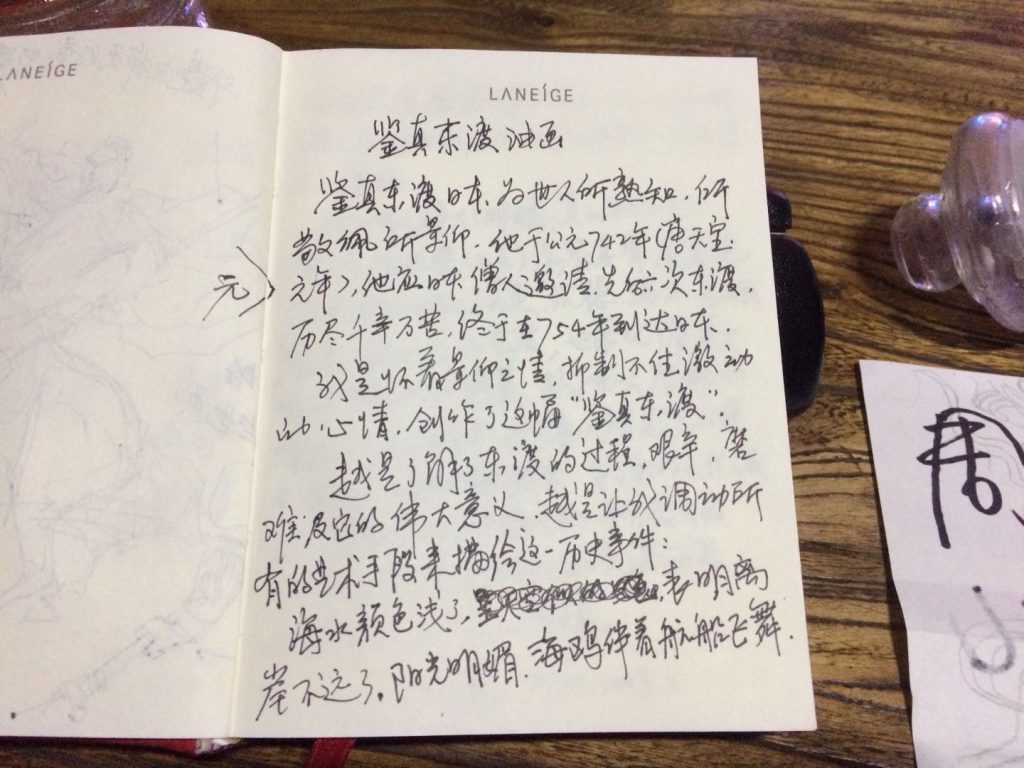 LANEÍGE
LANEÍGE
鉴真东渡油画
鉴真东渡日本为世人所熟知,所
敬佩所景仰.他于公元742年(唐天宝
元年),他应日本僧人邀请.先后六次东渡,
元
历尽千辛万苦.终于在754年到达日本.
我是怀着景仰之情,抑制不住激动
的心情,创作了这幅“鉴真东渡”.
越是了解了东渡的过程,艰辛,磨
难及它的伟大意义,越是让我调动所
有的艺术手段来描绘这一历史事件:
海水颜色浅了,表明离
岸不远了,阳光明媚.海鸥伴着航船飞舞.
周